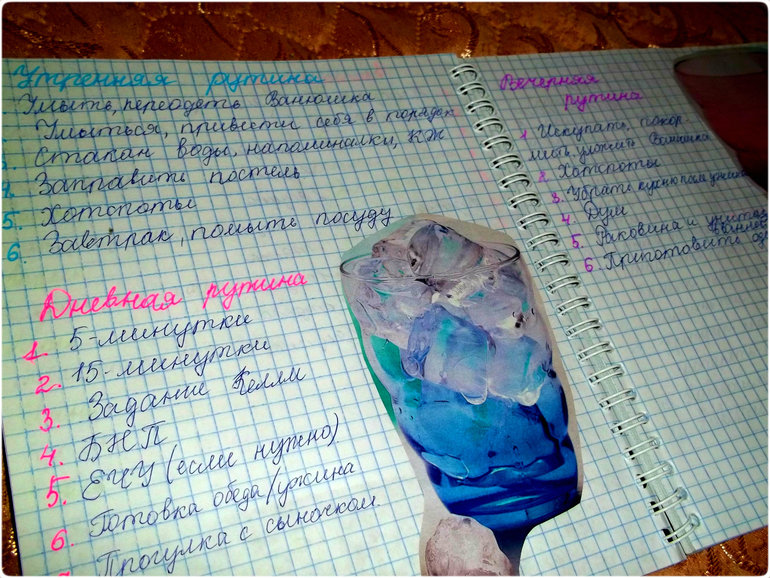 Утренняя рутина
Умыть, переодеть Ванюшка
Умыться, привести себя в порядок
3. Стакан воды, напоминалки, КЖ
4. Заправить постель
5. Хотспоты
6. Завтрак, помыть посуду
Дневная рутина
1. 5-минутки
2. 15-минутки
3. Задание Келли
4. БНП
5. ЕЧУ (если нужно)
6. Готовка обеда/ужина
7. Прогулка с сыночком.
Вечерняя
рутина
1. Искупать, покор-
мить уложить Ванюшка
2. Хотспоты
3. Убрать кухню после ужина
4. Душ
5. Раковина и унитаз
6. Приготовить